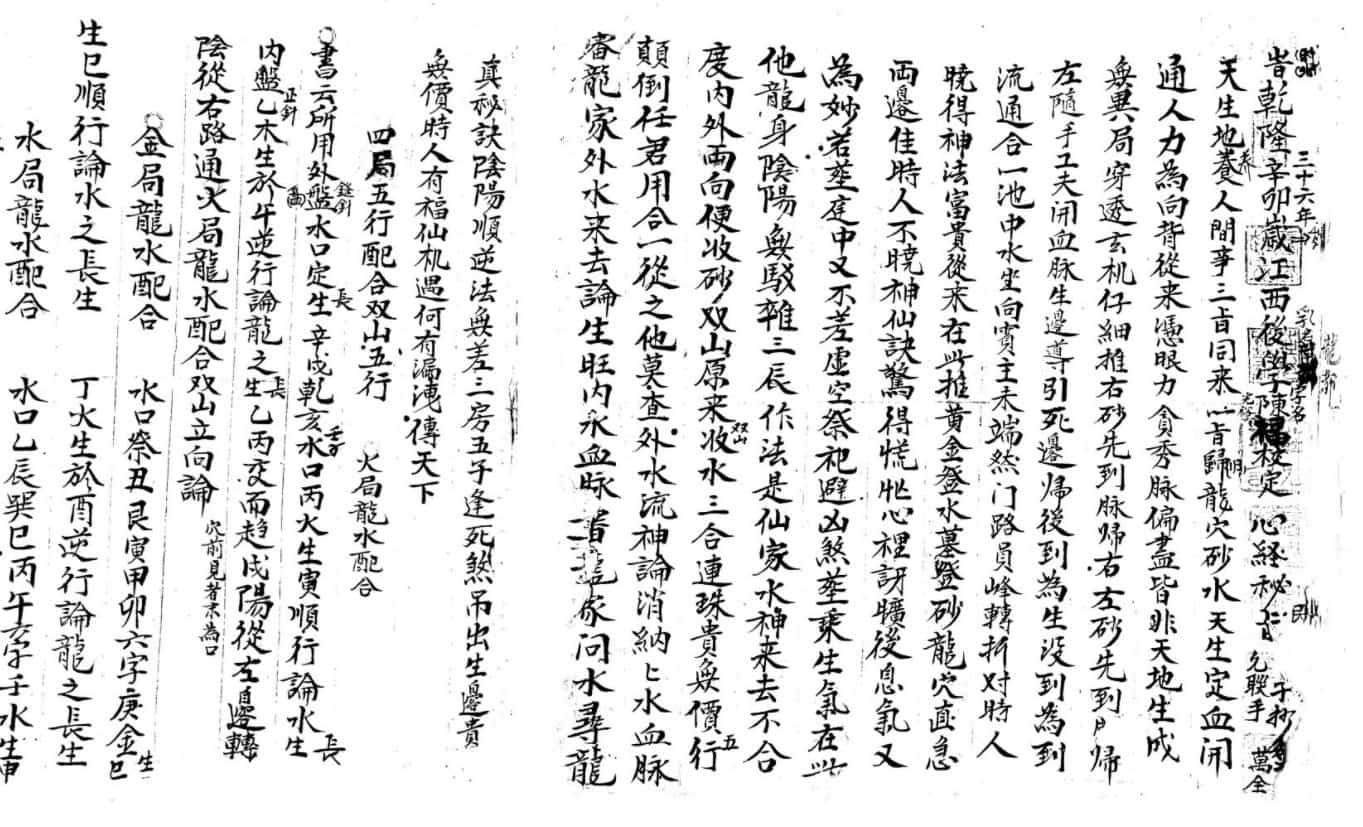 三十六年
旹乾隆辛卯嵗江西後學陳福校定 心経秘旨 允聫手 子抄 萬全
天生地養人間事三旨同来一旨歸龍穴砂水天生定血開
通人力為向背從来憑眼力貪秀脉偏盡皆非天地生成
無異局穿透玄机仔細推右砂先到脉帰右左砂先到帰
左隨手工夫開血脉生邊導引死邊帰後到為生没到為到
流通合一池中水坐向賓主未端然门路員峰轉折对時人
曉得神法富貴從来在此推黄金登水墓登砂龍穴直急
両邊佳時人不曉神仙訣驚得慌忙心裡訝曠後息氣又
為妙若塟庭中又不差虛空祭祀避凶煞塟乗生氣在此
他龍身陰陽無駁雜三辰作法是仙家水神来去不合
度内外両向便收砂双山原来收水三合連珠貴無價行
双山
五
顛倒任君用合一從之他莫查外水流神論消納七水血脉
龍家外水来去論生旺内水血脉旨龍家问水尋龍
真秘訣陰陽順逆法無差二房五子逢死煞吊出生邊貴
無價時人有福仙机遇何有漏洩傳天下
四局五行配合双山五行 火局龍水配合
書云所用外盤水口定生辛戌乾亥水口丙火生寅順行論水生
縫針
長
壬子
長
内盤乙木生於午逆行論龍之生乙丙交而趋戌陽從左邊轉
正針
長
陰從右路通火局龍水配合双山立向論 穴前見者亦為口
金局龍水配合 水口癸丑艮寅甲卯六字庚金生巳
生巳順行論水之長生 丁火生於酉逆行論龍之長生
水局龍水配合 水口乙辰巽巳丙午六字壬水生申